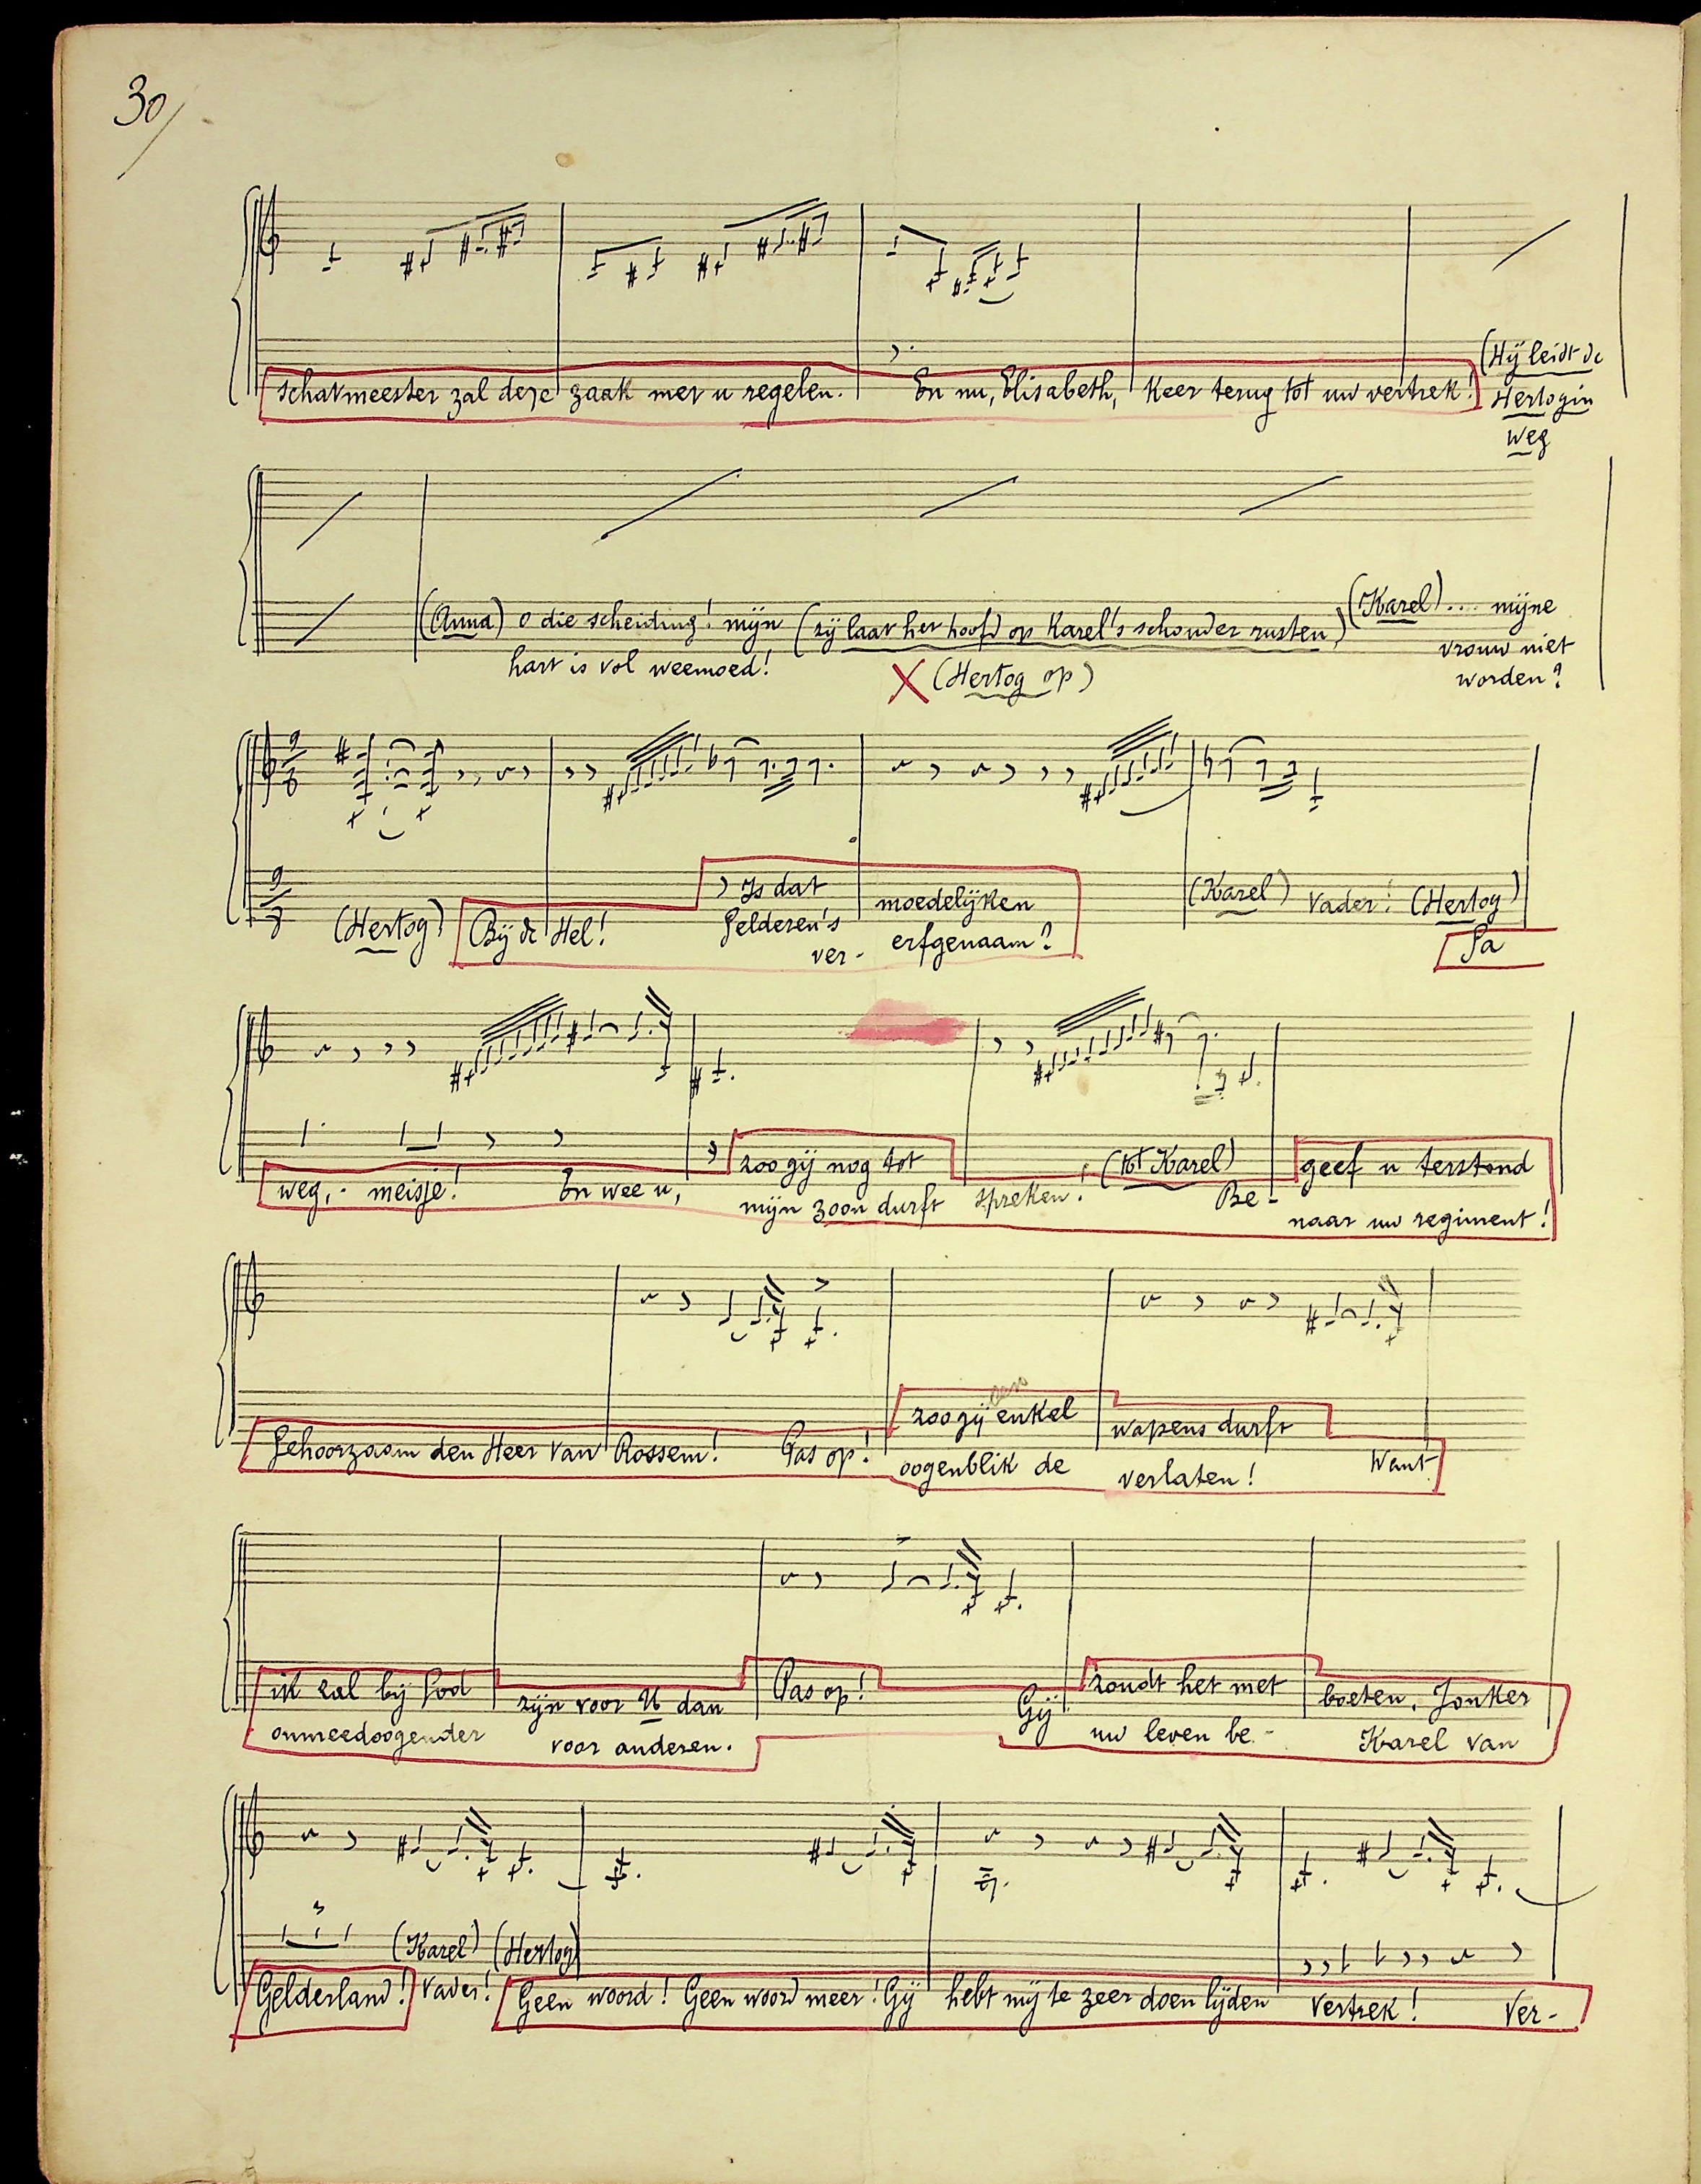 30/
schatmeester zal deze zaak met u regelen. En nu, Elisabeth, Keer terug tot uw vertrek!
(Hij leidt de
Hertogin
weg
(Anna) o die scheiding! mijn (zij laat het hoofd op Karel's schouder rusten) (Karel).... mijne
hart is vol weemoed!
vrouw niet
X (Hertog op)
worden?
9/8
9/8
(Hertog) Bij de Hel!
Is dat
Gelderen's
ver-
moedelijken
erfgenaam?
(Karel) Vader! (Hertog)
Ga
weg, meisje! En wee u,
zoo gij nog tot
mijn zoon durft
spreken! (tot Karel) Be-
geef u terstond
naar uw regiment!
Gehoorzaam den Heer van Rossem! Pas op!
zoo gij een enkel
oogenblik de
wapens durft
verlaten! Want
ik zal bij God
onmeedoogender
zijn voor U dan
voor anderen.
Pas op! Gij
zoudt het met
uw leven be-
boeten, Jonker
Karel van
3
(Karel) (Hertog)
Gelderland! Vader! Geen woord! Geen woord meer! Gij hebt mij te zeer doen lijden Vertrek! Ver-